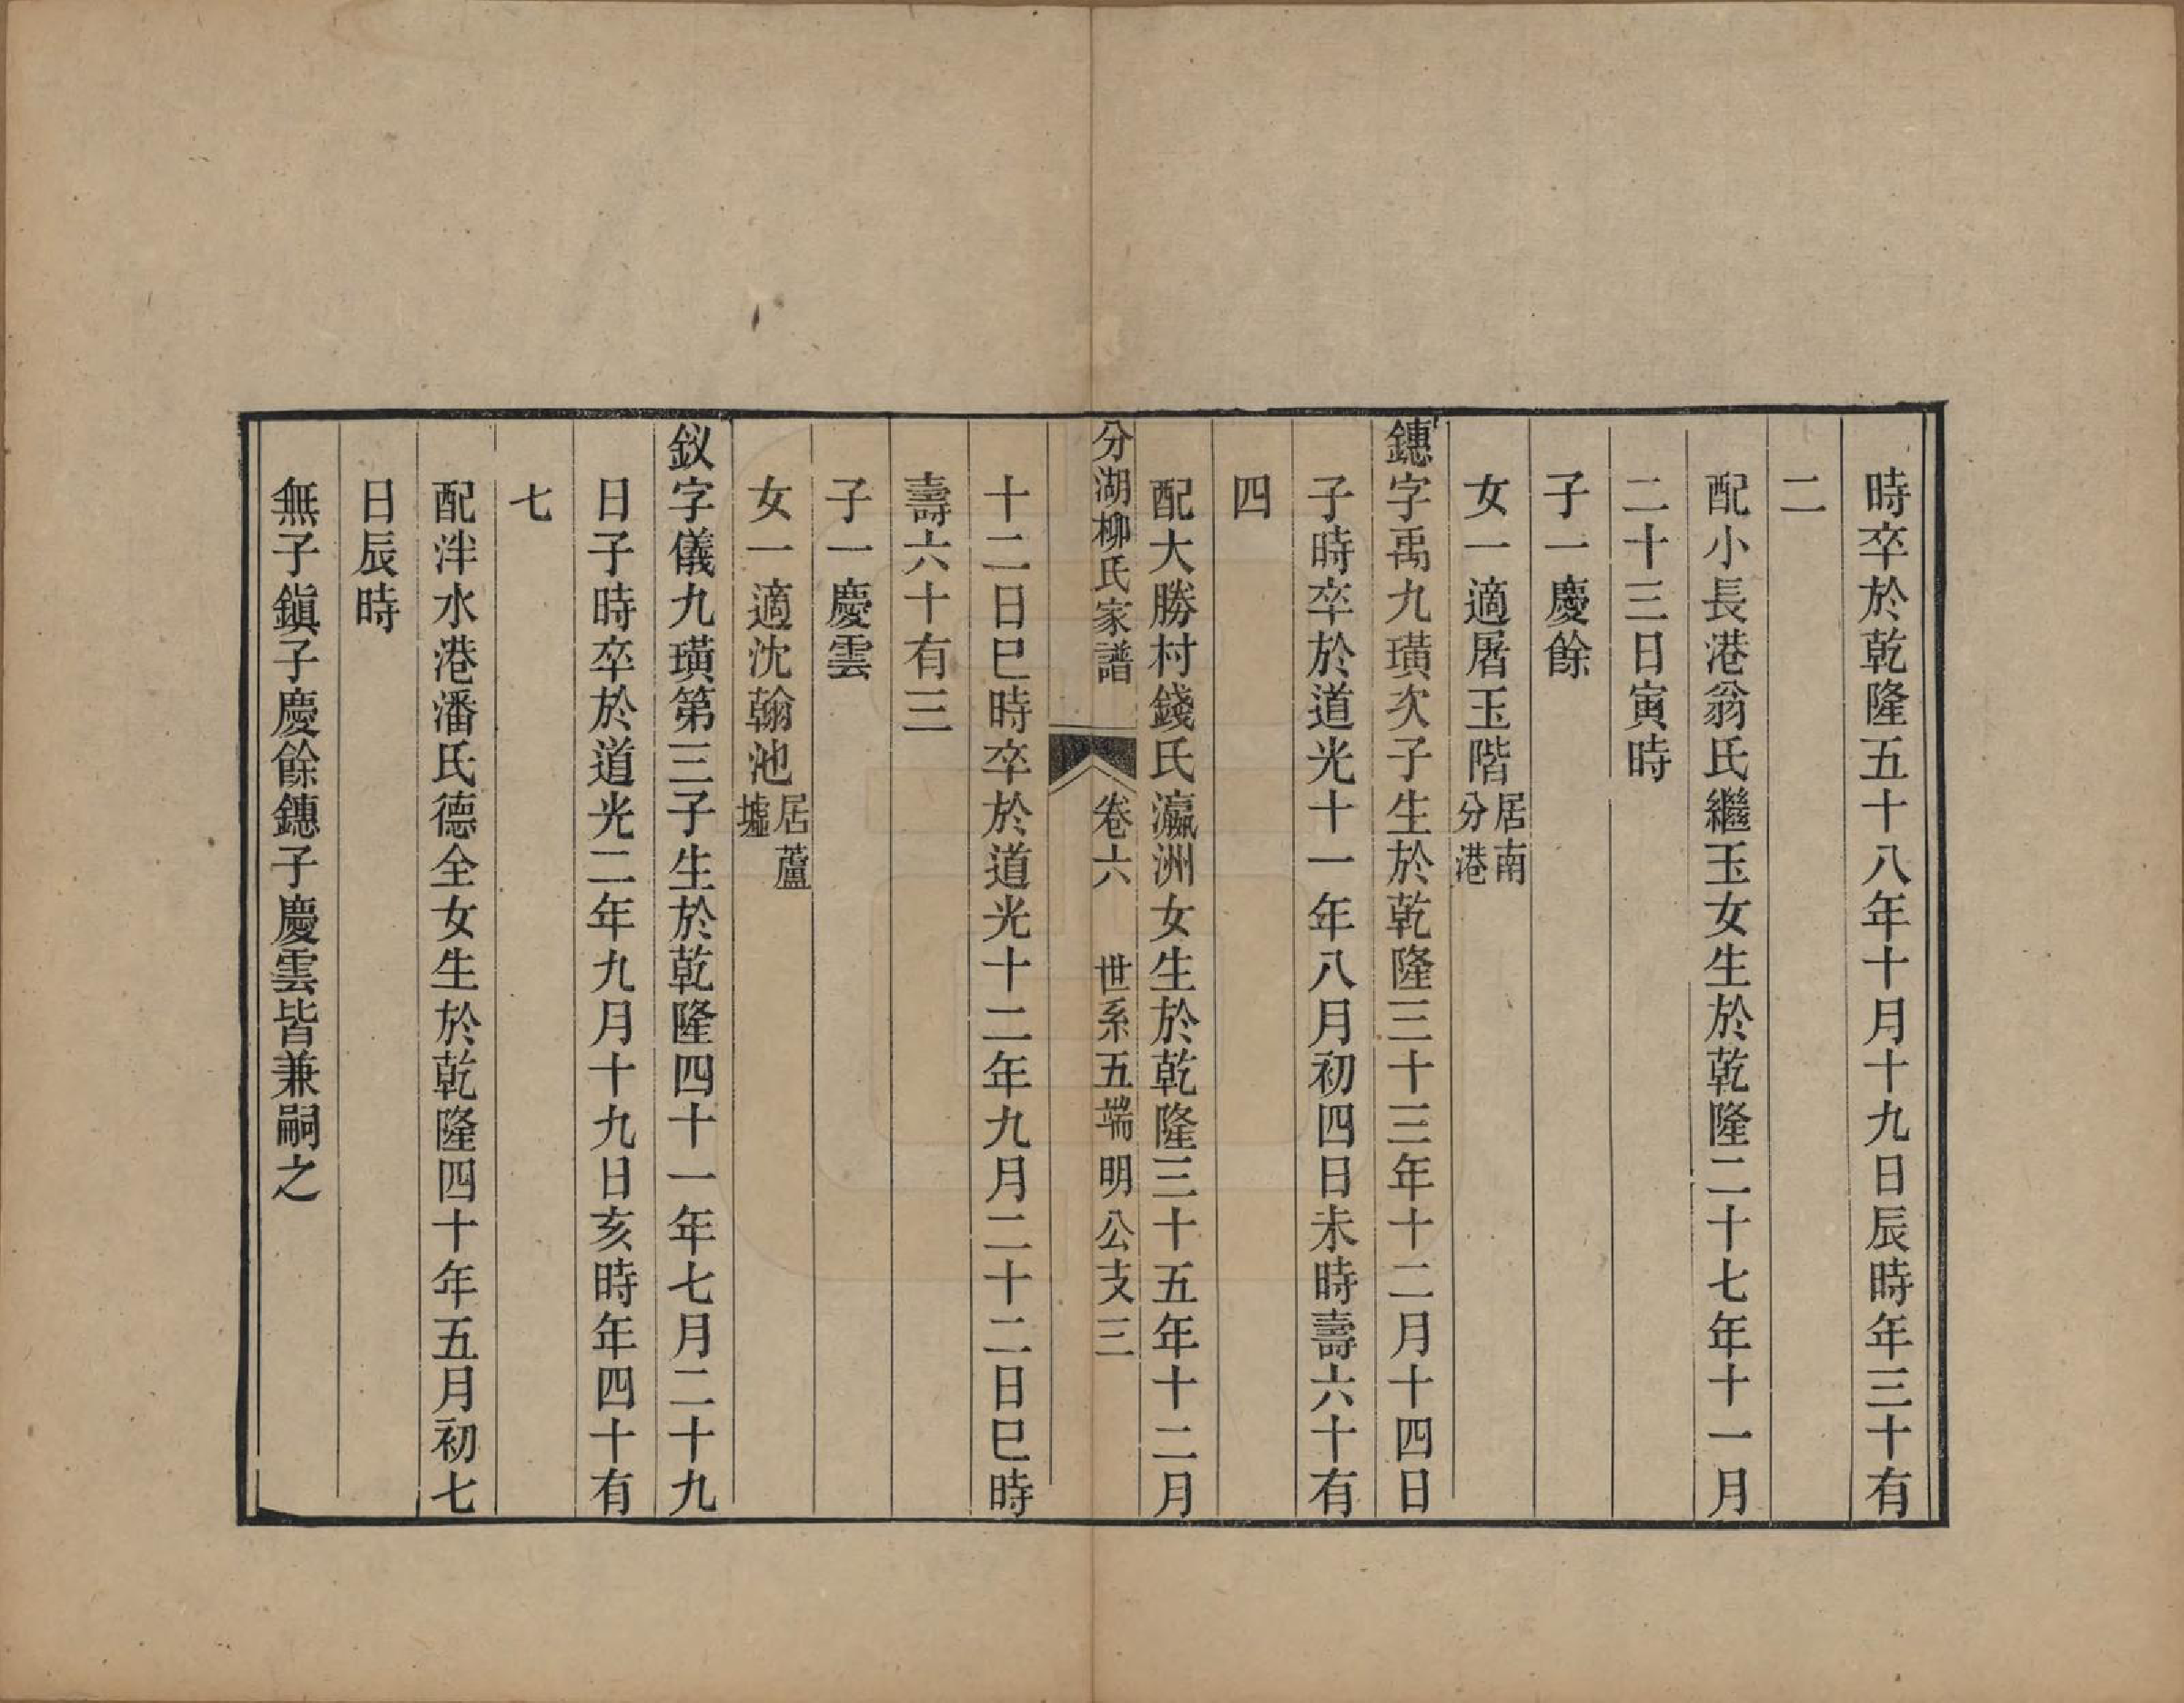 時卒於乾隆五十八年十月十九日辰時年三十有
二
配小長港翁氏繼玉女生於乾隆二十七年十一月
二十三日寅時
子一慶餘
女一適屠玉階居南分港
鏸字禹九璜次子生於乾隆三十三年十二月十四日
子時卒於道光十一年八月初四日未時壽六十有
四
配大勝村錢氏瀛洲女生於乾隆三十五年十二月
分湖柳氏家譜 卷六 世系五端明公支三
十二日巳時卒於道光十二年九月二十二日巳時
壽六十有三
子一慶雲
女一適沈翰池居蘆墟
釴字儀九璜第三子生於乾隆四十一年七月二十九
日子時卒於道光二年九月十九日亥時年四十有
七
配泮水港潘氏德全女生於乾隆四十年五月初七
日辰時
無子鎭子慶餘鏸子慶雲皆兼嗣之